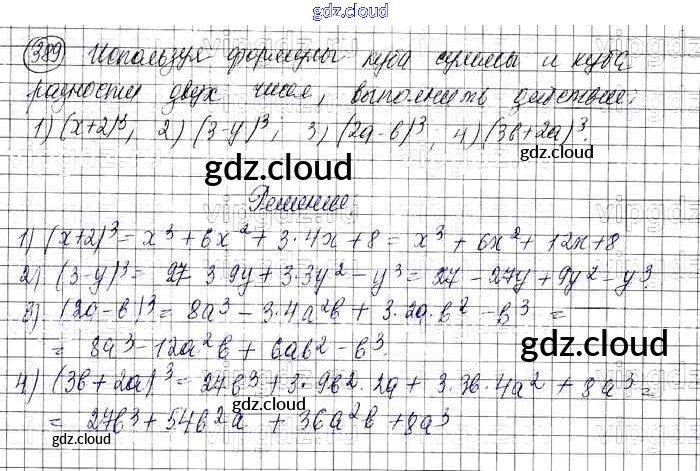 gdz.cloud
389 Используя формулы куба суммы и куба
разности двух чисел, выполнить действие:
1) (x+2)³, 2) (3-y)³; 3) (2a-b)³; 4) (3b+2a)³.
gdz.cloud
gdz.cloud
Решение:
1) (x+2)³ = x³ + 6x² + 3·4x + 8 = x³ + 6x² + 12x + 8
2) (3-y)³ = 27 3·9y + 3·3y² - y³ = 27 - 27y + 9y² - y³.
3) (2a-b)³ = 8a³ - 3·4a²b + 3·2a·b² - b³ =
= 8a³ - 12a²b + 6ab² - b³.
gdz.cloud
gdz.cloud
4) (3b+2a)³ = 27b³ + 3·9b²·2a + 3·3b·4a² + 8a³ =
= 27b³ + 54b²a + 36a²b + 8a³
gdz.cloud
gdz.cloud
gdz.cloud